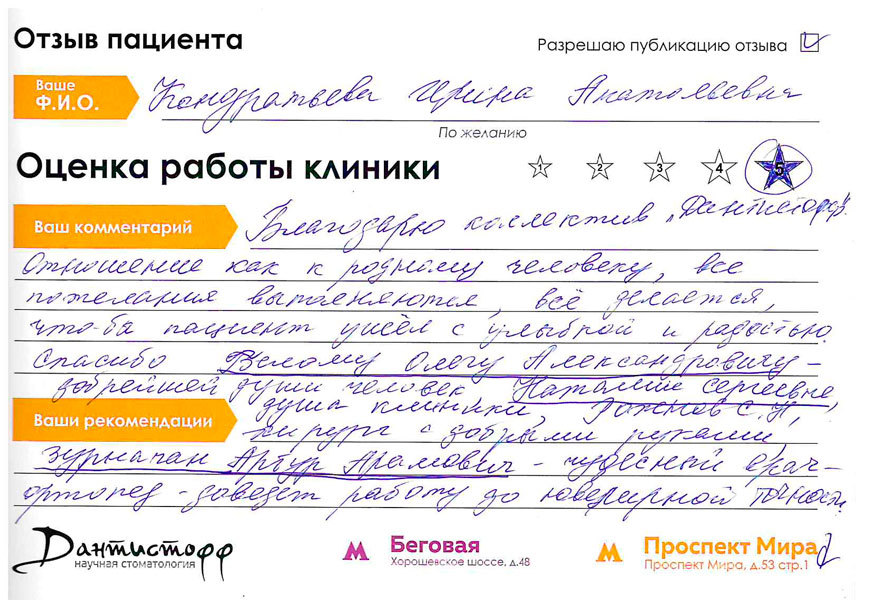 Отзыв пациента
Разрешаю публикацию отзыва
Ваше
Ф.И.О.
Кондратьева Ирина Анатольевна
По желанию
Оценка работы клиники
1 2 3 4 5
Ваш комментарий
Благодарю коллектив „Дантистофф".
Отношение как к родному человеку, все
пожелания выполняются, всё делается,
что-бы пациент ушёл с улыбкой и радостью.
Спасибо Белому Олегу Александровичу –
добрейшей души человек Наталие Сергеевне,
душа клиники, С.Н,
Ваши рекомендации
хирург с добрыми руками,
Зурначан Артур Арамович – чудесный врач–
ортопед – доведёт работу до ювелирной точности.
Дантистофф
научная стоматология
Беговая
Хорошевское шоссе, д.48
Проспект Мира
Проспект Мира, д.53 стр.1